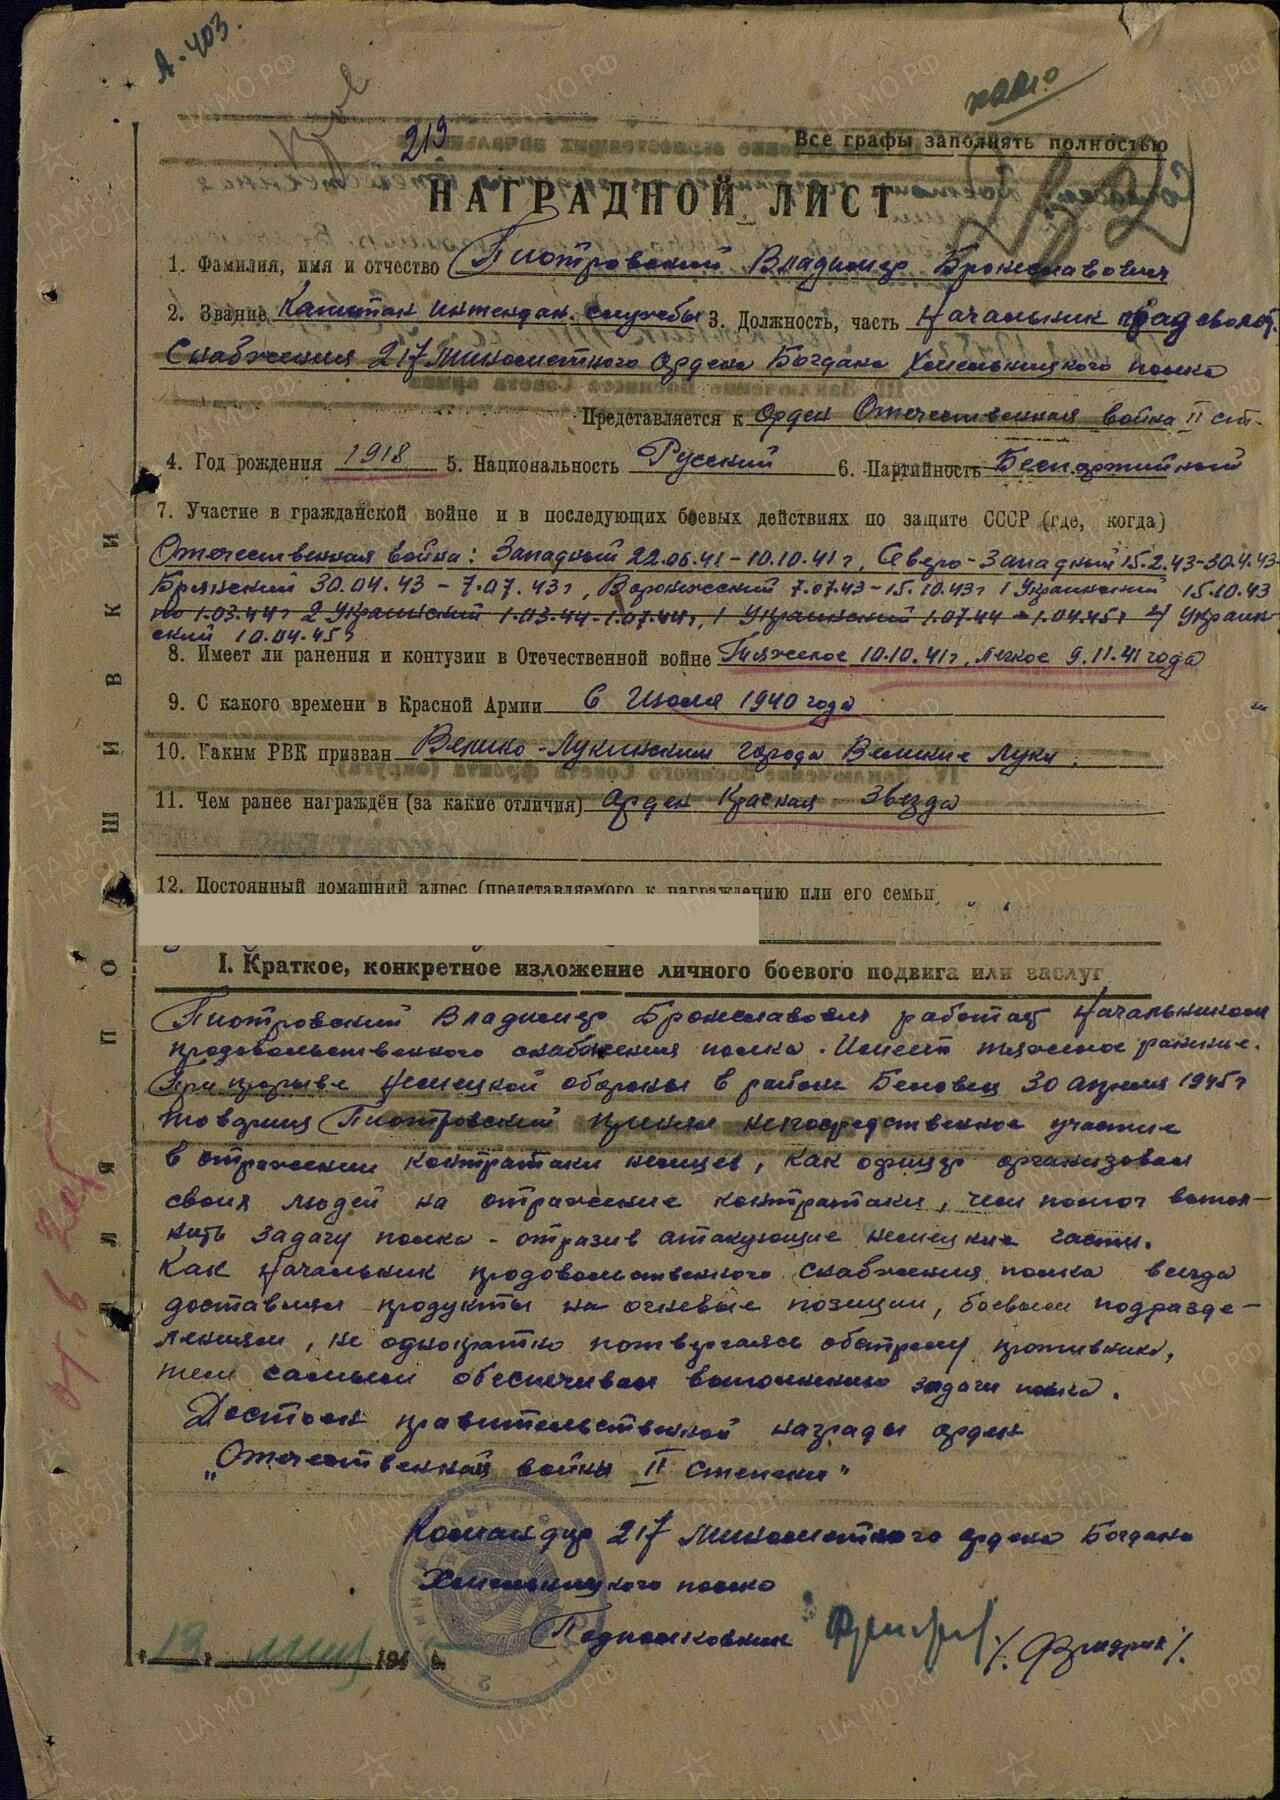 А-403.
219
Все графы заполнять полностью
НАГРАДНОЙ ЛИСТ
1. Фамилия, имя и отчество Пиотровский Владимир Брониславович
2. Звание Капитан интендан. службы 3. Должность, часть Начальник продовольст.
Снабжения 217 Минометного Ордена Богдана Хмельницкого полка
Представляется к Орден Отечественная война II ст.
4. Год рождения 1918 5. Национальность Русский 6. Партийность Беспартийный
7. Участие в гражданской войне и в последующих боевых действиях по защите СССР (где, когда)
Отечественная война: Западный 22.06.41 - 10.10.41 г, Северо-Западный 15.2.43-30.4.43
Брянский 30.04.43 - 7.07.43 г, Воронежский 7.07.43 - 15.10.43 г 1 Украинский 15.10.43
по 1.03.44 г 2 Украинский 1.03.44 - 1.07.44 г, 1 Украинский 1.07.44 - 1.04.45 г 4 Украин-
ский 10.04.45 г
8. Имеет ли ранения и контузии в Отечественной войне Тяжелое 10.10.41 г, легкое 9.11.41 года
9. С какого времени в Красной Армии С Июля 1940 года
10. Каким РВК призван Велико-Лукинским города Великие Луки.
11. Чем ранее награждён (за какие отличия) Орден Красная Звезда
12. Постоянный домашний адрес (представляемого к награждению или его семьи
I. Краткое, конкретное изложение личного боевого подвига или заслуг
Пиотровский Владимир Брониславович работая Начальником
продовольственного снабжения полка. Имеет тяжелое ранение.
При прорыве немецкой обороны в районе Беновец 30 апреля 1945 г
товарищ Пиотровский принял непосредственное участие
в отражении контратаки немцев, как офицер организовал
своих людей на отражение контратаки, чем помог выпол-
нить задачу полка - отразив атакующие немецкие части.
Как Начальник продовольственного снабжения полка всегда
доставлял продукты на огневые позиции, боевым подразде-
лениям, не однократно потвергаясь обстрелу противника,
тем самым обеспечивал выполнению задачи полка.
Достоин правительственной награды орден
„Отечественной войны II степени"
Командир 217 Минометного ордена Богдана
Хмельницкого полка
Подполковник /Фридрих/.
"19" мая 1945 г.
ДЛЯ ПОДШИВКИ